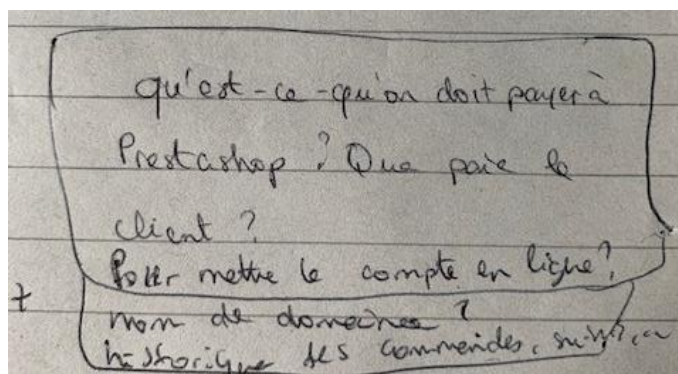 qu'est-ce-qu'on doit payer à
Prestashop ? Que paie le
client ?
Pour mettre le compte en ligne ?
+ nom de domaine ?
historique des commandes,